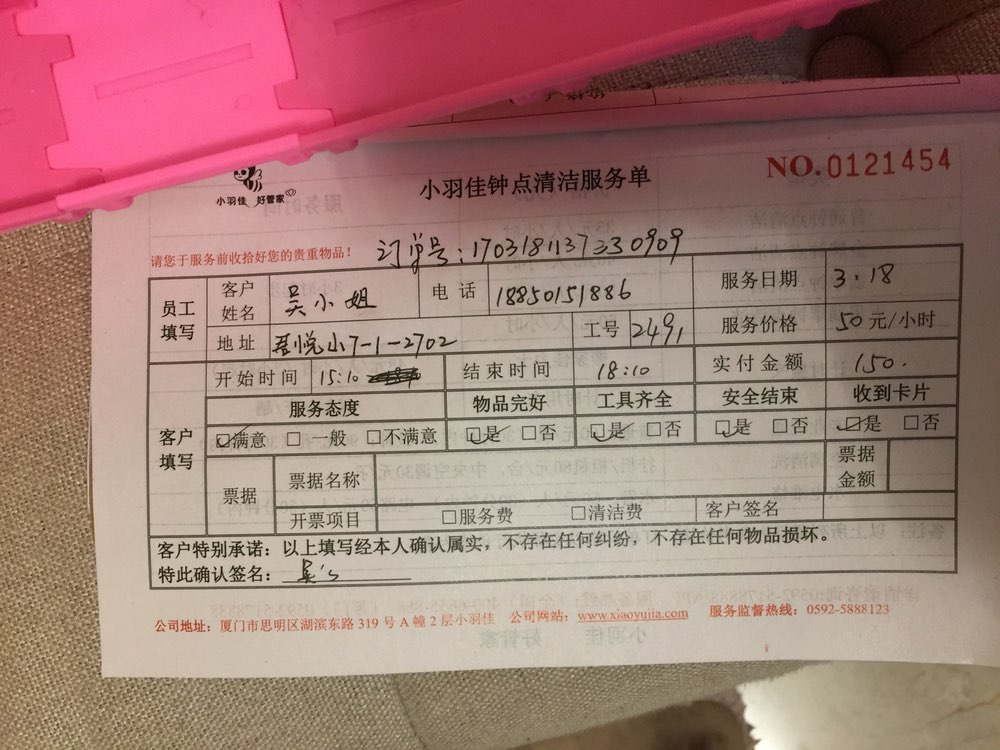 小羽佳 好管家
小羽佳钟点清洁服务单
NO.0121454
请您于服务前收拾好您的贵重物品！
订单号：1703181137330909
员工填写 客户姓名 吴小姐 电话 18850151886 服务日期 3.18
地址 吾悦小7-1-2702 工号 2491 服务价格 50元/小时
客户填写 开始时间 15:10 结束时间 18:10 实付金额 150.
服务态度 物品完好 工具齐全 安全结束 收到卡片
☑满意 □一般 □不满意 ☑是 □否 ☑是 □否 ☑是 □否 ☑是 □否
票据 票据名称 票据金额
开票项目 □服务费 □清洁费 客户签名
客户特别承诺：以上填写经本人确认属实，不存在任何纠纷，不存在任何物品损坏。
特此确认签名：吴's
公司地址：厦门市思明区湖滨东路 319 号 A 幢 2 层小羽佳 公司网站：www.xiaoyujia.com 服务监督热线：0592-5888123